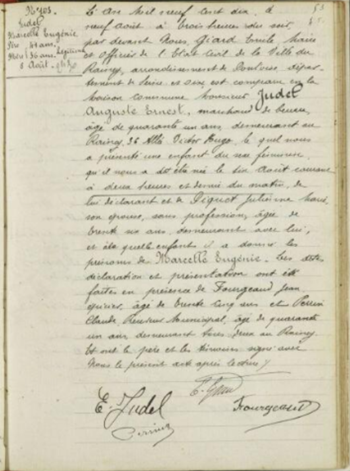 N° 93.
Judel
Marcelle Eugénie
Père 41 ans
Mère 36 ans Légitime
6 Août
L'An Mil neuf cent dix, le
neuf Août à trois heures du soir,
par devant Nous Girard Emile Maire
et officier de l'Etat Civil de la Ville du
Raincy, arrondissement de Pontoise, dépar-
tement de Seine et Oise est comparu en la
maison commune Monsieur Judel
Auguste Ernest, marchand de beurre,
âgé de quarante un ans demeurant au
Raincy, 36 Allée Victor Hugo, lequel nous
a présenté une enfant du sexe féminin
qu'il nous a dit être née le six Août courant
à deux heures et demie du matin, de
lui déclarant et de Piquet Julienne Marie,
son épouse, sans profession, âgée de
trente six ans demeurant avec lui,
et à laquelle enfant il a donné les
prénoms de Marcelle Eugénie. Les dites
déclaration et présentation ont été
faites en présence de Fourgeaud Jean
âgé de trente cinq ans et Perrin
Claude Receveur Municipal, âgé de quarante
un ans, demeurant tous deux au Raincy
Et ont le père et les témoins signé avec
Nous le présent acte après lecture /
E. Judel
Perrin
Fourgeaud